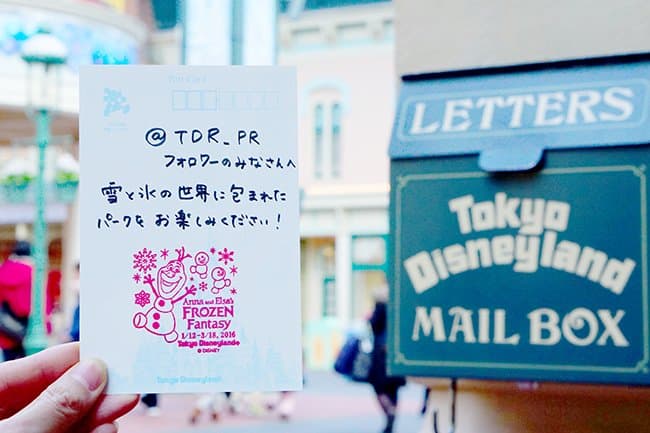 Post Card
@TDR_PR
フォロワーのみなさんへ
雪と氷の世界に包まれた
パークをお楽しみください!
Anna and Elsa's
FROZEN
Fantasy
1/12-3/18, 2016
Tokyo Disneyland
© DISNEY
Tokyo Disneyland
LETTERS
Tokyo
Disneyland
MAIL BOX